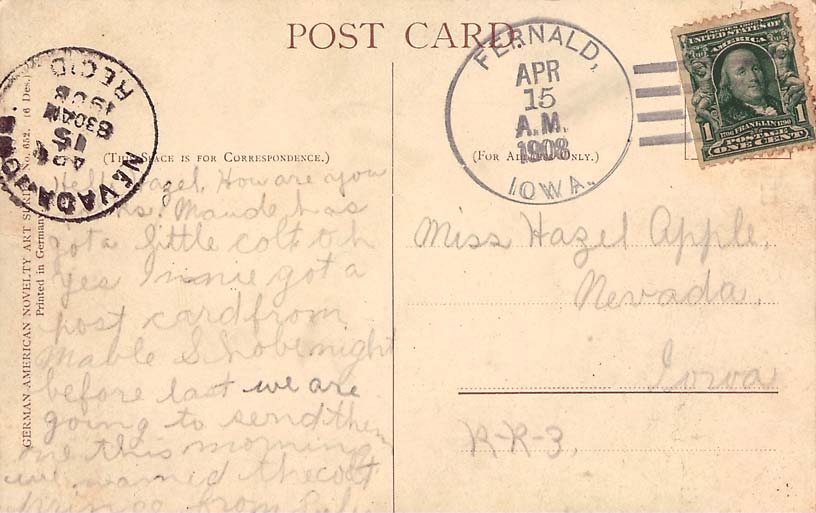 POST CARD
FERNALD,
APR
15
A.M.
1908
IOWA.
SERIES 1902
UNITED STATES OF
AMERICA
1
1706 FRANKLIN 1790
POSTAGE
ONE CENT
NEVADA,
APR
15
830AM
1908
REC'D
(THIS SPACE IS FOR CORRESPONDENCE.)
(FOR ADDRESS ONLY.)
GERMAN AMERICAN NOVELTY ART SERIES No. 652. (6 Des.)
Printed in Germany
Hello Hazel. How are you
Maude has
got a little colt oh
yes Innie got a
post card from
Mable night
before last we are
going to send them
one this morning
we named the colt
from
Miss Hazel Apple,
Nevada,
Iowa
R-R-3,